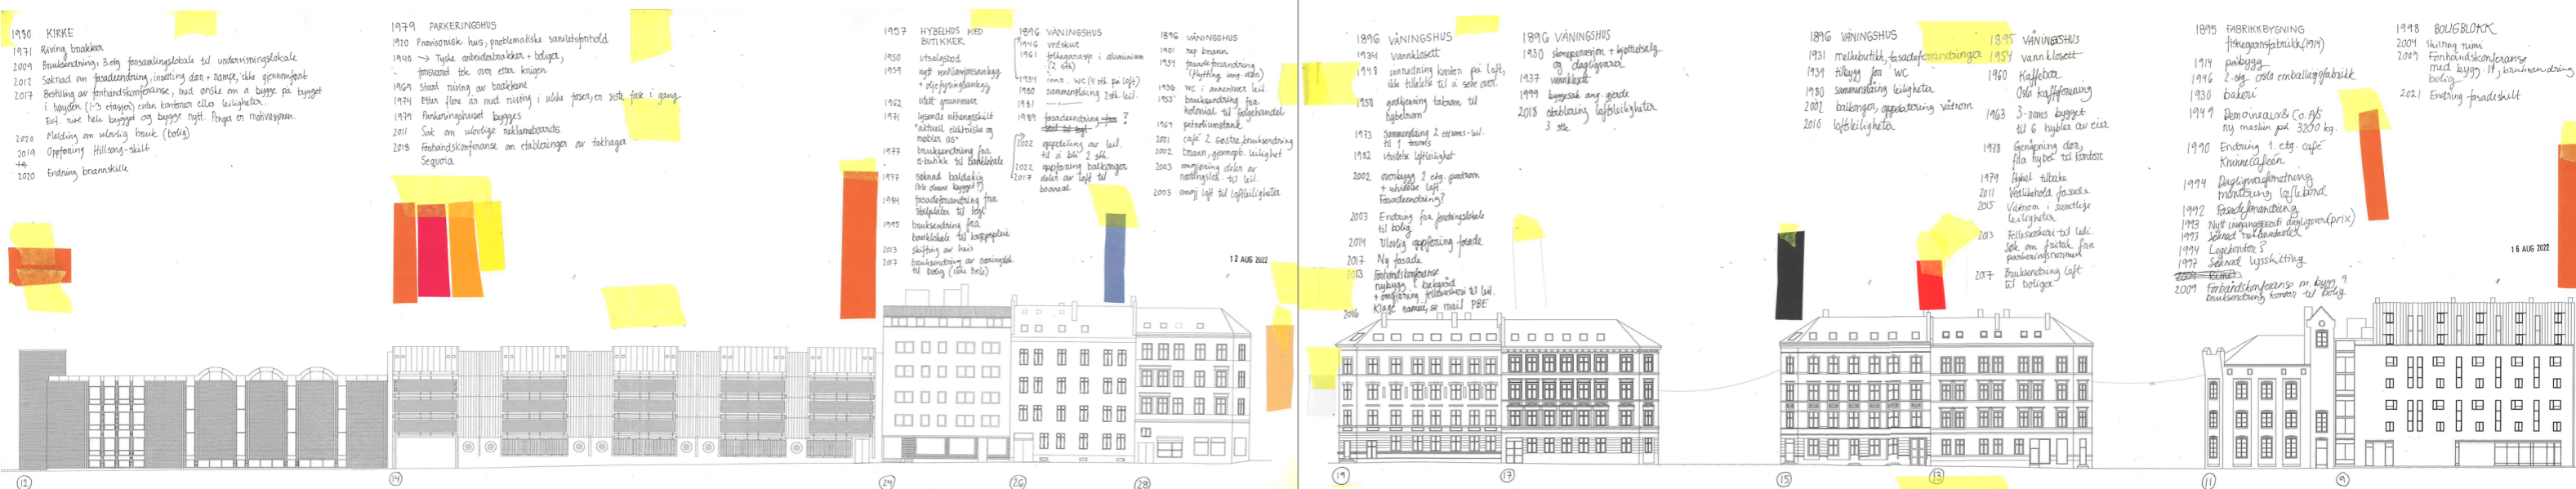 1980 KIRKE
1971 Riving brakker
2009 Bruksendring, 3.etg forsamlingslokale til undervisningslokale
2012 Søknad om fasadeendring, innsetting dør + rampe, ikke gjennomført
2017 Bestilling av forhåndskonferanse, hvd ønske om å bygge på bygget
i høyden (1-3 etasjer) enten kontorer eller leiligheter.
Evt. rive hele bygget og bygge nytt. Penger en motivasjon.
2020 Melding om ulovlig bruk (bolig)
2019 Oppføring Hillsong-skilt
2020 Endring brannskille
1979 PARKERINGSHUS
1920 Provisorisk hus, problematiske sanitetsforhold
1940 → Tyske arbeiderbrakker + boliger,
forsvaret tok over etter krigen
1969 Startet riving av brakkene
1974 Etter flere år med riving i ulike faser, en siste fase i gang
1979 Parkeringshuset bygges
2011 Søk om ulovlige reklameboards
2018 Forhåndskonferanse om etableringer av takhager
Sequoia
1957 HYBELHUS MED
BUTIKKER
1950 utsalgsbod
1959 nytt ventilasjonsanlegg
+ oljefyringsanlegg
1962
1971 lysende uthengsskilt
"aktuell elektriske og
møbler as"
1977 bruksendring fra
butikk til banklokale
1977 søknad baldakin
1984 fasadeforandring fra
stålplater til tegl
1995 bruksendring fra
banklokale til
2013 skifting av heis
2017 bruksendring av næringslok.
til bolig (ikke hele)
1896 VÅNINGSHUS
1946 vedskur
1961 folkegarasje i aluminium
(2 stk)
1984 innr. WC (4 stk på loft)
1980 sammenslåing 2stk. leil.
1981
1989 fasadeendring ?
2022 oppdeling av leil.
til å bli 2 stk.
2022 oppføring balkonger
2017 deler av loft til
boareal
1896 VÅNINGSHUS
1901 rep brann
1934 fasadeforandring
(flytting inng. dør)
1936 WC i annenhver leil.
1955 bruksendring fra
kolonial til farghandel
1964 petroliumstank
2001 café 2 søstre, bruksendring
2002 brann, gjenoppb. leilighet
2003 omgjøring deler av
næringslok. til leil.
2003 omgj loft til loftleiligheter
12 AUG 2022
1896 VÅNINGSHUS
1934 vannklosett
1948 innredning kontor på loft,
ikke tillatelse til å sove over.
1950 godkjenning takrom til
hybelrom
1973 Sammenslåing 2 ettroms-leil.
til 1
1982 utvidelse loftleilighet
2002 overbygg 2 etg.
+ utvidelse loft
Fasadeendring?
2003 Endring fra forretningslokale
til bolig
2014 Ulovlig oppføring fasade
2017 Ny fasade
2013 Forhåndskonferanse
nybygg i bakgård
+ omgjøring fellesvaskeri til leil.
2016 Klage naboer, se mail PBE
1896 VÅNINGSHUS
1930 skoreparasjon + kjøttutsalg
og dagligvarer
1937 vannklosett
1999 byggesak ang. gjerde
2018 etablering loftsleiligheter
3 stk.
1896 VÅNINGSHUS
1931 melkebutikk, fasadeforandringer
1939 tilbygg for WC
1980 sammenslåing leilighet
2002 balkonger, oppgradering våtrom
2010 loftsleiligheter
1895 VÅNINGSHUS
1954 vannklosett
1960 Kaffebar
Oslo Kaffeforening
1963 3-roms bygget
til 6 hybler av eier
1978 Gjenåpning dør,
fra hybel til kontor
1979 Hybel tilbake
2011 Vedlikehold fasade
2015 Våtrom i samtlige
leiligheter
2013 Fellesvaskeri til leil.
Søk om fritak fra
parkeringsnormen
2017 Bruksendring loft
til boliger
1895 FABRIKKBYGNING
fiskegarnsfabrikk (1914)
1914 påbygg
1946 2.etg oslo emballagefabrikk
1930 bakeri
1949 Demoineaux & Co. A/S
ny maskin på 3200 kg.
1990 Endring 1. etg. café
Kruinecaféen
1994 Dagligvareforretning
montering løpebånd
1992 Fasadeforandring
1993 Nytt inngangsparti dagligvarer (prix)
1993 Søknad reklameskilt
1994 Legekontor?
1997 Søknad lysskilting
2009 Forhåndskonferanse m. bygg 9
bruksendring kontor til bolig
1998 BOLIGBLOKK
2004 skilting rimi
2009 Forhåndskonferanse
med bygg 11, bruksendring
bolig
2021 Endring fasadeskilt
16 AUG 2022
12
14
24
26
28
19
17
15
13
11
9